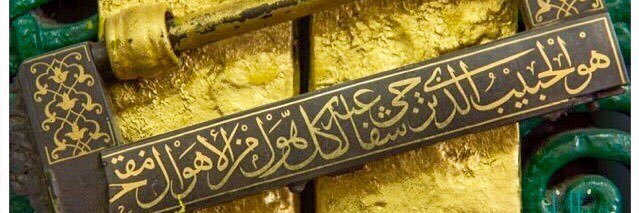 هو الحبيب الذي ترجى شفاعته لكل هول من الأهوال مقتحم